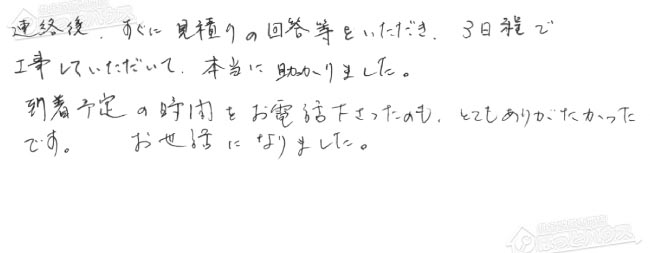 連絡後、すぐに見積りの回答等をいただき、3日程で
工事していただいて、本当に助かりました。
到着予定の時間をお電話下さったのも、とてもありがたかった
です。 お世話になりました。